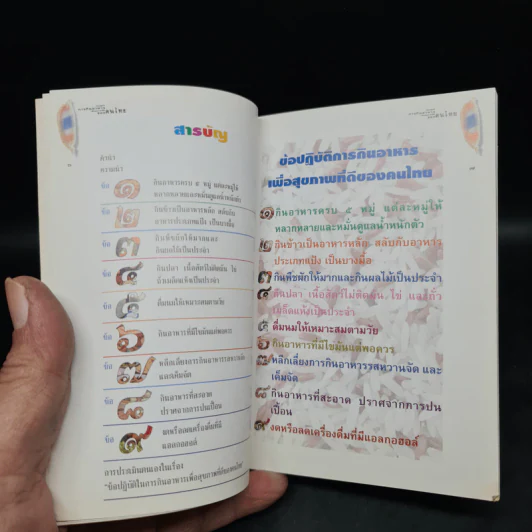 คนไทย
สารบัญ
คำนำ
ความนำ
ข้อ ๑ กินอาหารครบ ๕ หมู่ แต่ละหมู่ให้
หลากหลายและหมั่นดูแลน้ำหนักตัว
ข้อ ๒ กินข้าวเป็นอาหารหลัก สลับกับ
อาหารประเภทแป้ง เป็นบางมื้อ
ข้อ ๓ กินพืชผักให้มากและ
กินผลไม้เป็นประจำ
ข้อ ๔ กินปลา เนื้อสัตว์ไม่ติดมัน ไข่
ถั่วเมล็ดแห้งเป็นประจำ
ข้อ ๕ ดื่มนมให้เหมาะสมตามวัย
ข้อ ๖ กินอาหารที่มีไขมันแต่พอควร
ข้อ ๗ หลีกเลี่ยงการกินอาหารรสหวานจัด
และเค็มจัด
ข้อ ๘ กินอาหารที่สะอาด
ปราศจากการปนเปื้อน
ข้อ ๙ งดหรือลดเครื่องดื่มที่มี
แอลกอฮอล์
การประเมินตนเองในเรื่อง
"ข้อปฏิบัติในการกินอาหารเพื่อสุขภาพที่ดีของคนไทย"
คนไทย
ข้อปฏิบัติการกินอาหาร
เพื่อสุขภาพที่ดีของคนไทย
๑ กินอาหารครบ ๕ หมู่ แต่ละหมู่ให้
หลากหลายและหมั่นดูแลน้ำหนักตัว
๒ กินข้าวเป็นอาหารหลัก สลับกับอาหาร
ประเภทแป้ง เป็นบางมื้อ
๓ กินพืชผักให้มากและกินผลไม้เป็นประจำ
๔ กินปลา เนื้อสัตว์ไม่ติดมัน ไข่ และถั่ว
เมล็ดแห้งเป็นประจำ
๕ ดื่มนมให้เหมาะสมตามวัย
๖ กินอาหารที่มีไขมันแต่พอควร
๗ หลีกเลี่ยงการกินอาหารรสหวานจัด และ
เค็มจัด
๘ กินอาหารที่สะอาด ปราศจากการปน
เปื้อน
๙ งดหรือลดเครื่องดื่มที่มีแอลกอฮอล์